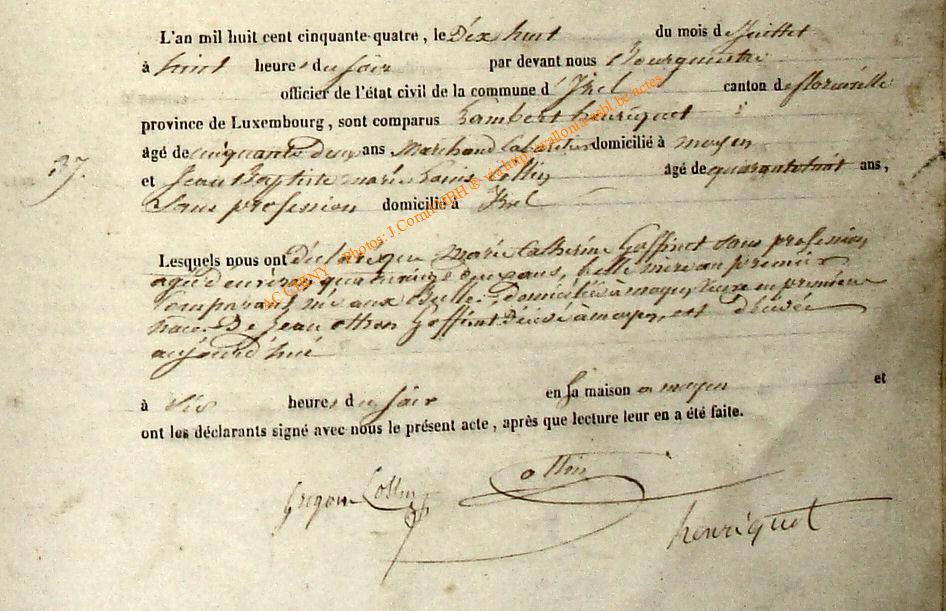 L'an mil huit cent cinquante-quatre, le Dix huit du mois de Juillet
à huit heures du soir par devant nous Bourgmestre
officier de l'état civil de la commune d'Izel canton de florenville
province de Luxembourg, sont comparus Lambert henriquet
âgé de cinquante deux ans Marchand Cabaretier domicilié à moyen
37.
et Jean Baptiste marie Louis Collin âgé de quarante huit ans,
Sans profession domicilié à Izel
Lesquels nous ont Déclaré que Marie Catherine Goffinet sans profession
agée d'environ quatrevingt deux ans, belle mere au premier
comparant née aux Bulles, domiciliée à moyen, veuve en premiere
noce De Jean Goffinet Décédé a moyen, est décédée
aujourd'hui
à Six heures du soir en Sa maison a moyen et
ont les déclarants signé avec nous le présent acte, après que lecture leur en a été faite.
Collin
henriquet
ACC CHINY Photos: J.Cornil GBH ® via http://wallonia.ggbl.be/actes